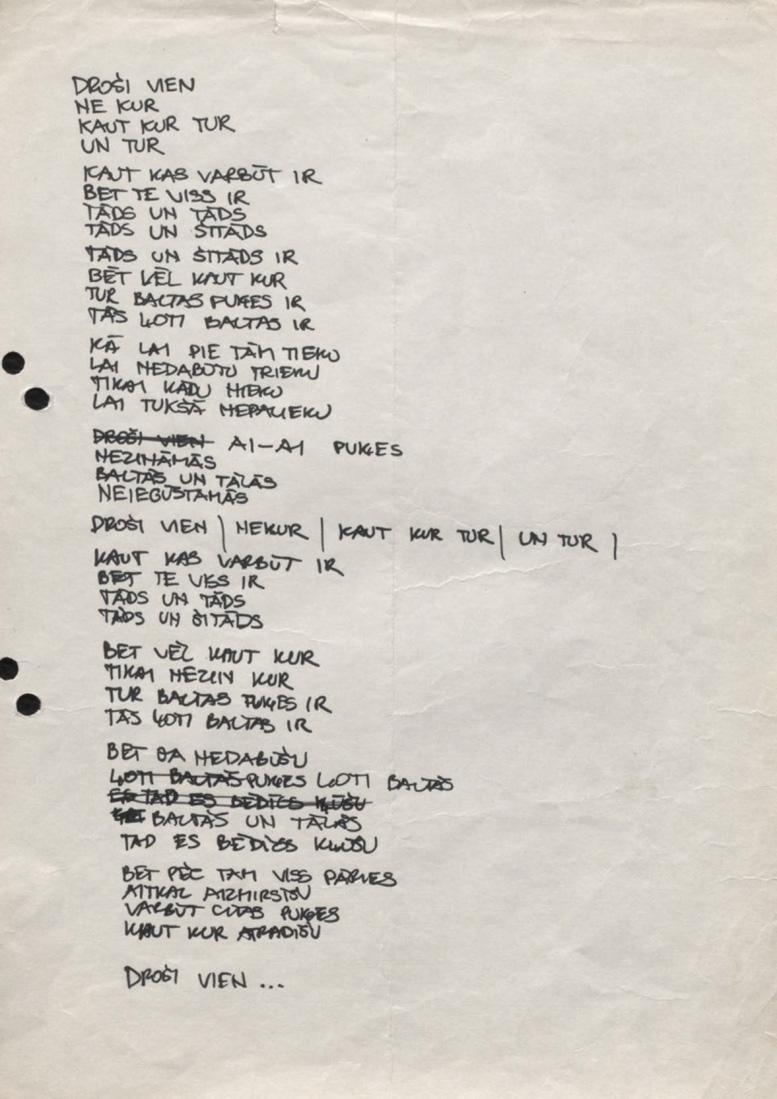 DROŠI VIEN
NE KUR
KAUT KUR TUR
UN TUR
KAUT KAS VARBŪT IR
BET TE VISS IR
TĀDS UN TĀDS
TĀDS UN ŠITĀDS
TĀDS UN ŠITĀDS IR
BET VĒL KAUT KUR
TUR BALTAS PUĶES IR
TĀS ĻOTI BALTAS IR
KĀ LAI PIE TĀM TIEKU
LAI NEDABŪTU TRIEKU
TIKAI KĀDU NIEKU
LAI TUKŠĀ NEPALIEKU
DROŠI VIEN AI-AI PUĶES
NEZINĀMĀS
BALTĀS UN TĀLĀS
NEIEGŪSTAMĀS
DROŠI VIEN | NEKUR | KAUT KUR TUR | UN TUR |
KAUT KAS VARBŪT IR
BET TE VISS IR
TĀDS UN TĀDS
TĀDS UN ŠITĀDS
BET VĒL KAUT KUR
TIKAI NEZIN KUR
TUR BALTAS PUĶES IR
TĀS ĻOTI BALTAS IR
BET JA NEDABŪŠU
ĻOTI BALTĀS PUĶES ĻOTI BALTĀS
TAD ES BĒDĪGS KĻŪŠU
BALTĀS UN TĀLĀS
TAD ES BĒDĪGS KĻŪŠU
BET PĒC TAM VISS PĀRIES
ATKAL AIZMIRSĪŠU
VARBŪT CITAS PUĶES
KAUT KUR ATRADĪŠU
DROŠI VIEN ...